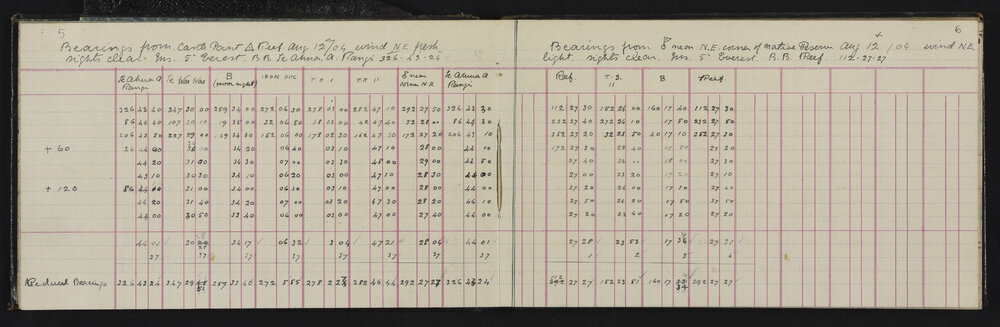 5
Bearings from Castle Point △ Reef. Aug 12th/04 wind N.E. fresh.
sights clear. Ins. 5" Everest. R.B. Te Ahua A. Rangi 326.43.24
Te Ahua A Rangi Te Wae Wae B (moon sight) IRON PIPE T.P. I T.P. II near corner N.R Te Ahuna A Rangi
326 43 40 347 30 00 259 34 00 272 06 30 278 03 00 282 47 10 292 27 50 326 43 30
86 44 40 107 30 10 19 35 00 32 06 50 18 03 00 42 47 40 52 28 00 86 44 30
206 43 50 227 29 00 139 34 30 152 06 00 178 02 30 162 47 30 172 27 20 206 43 10
+ 60 26 44 00 30 00 34 20 06 40 03 10 47 10 28 00 44 00
44 20 31 00 34 30 07 00 03 30 48 00 29 00 43 50
43 10 30 30 34 10 06 20 03 00 47 10 28 30 44 00
+ 120 86 44 00 31 00 34 00 06 30 03 10 47 00 28 00 44 00
44 20 31 40 34 20 07 00 03 20 47 30 28 20 44 20
44 00 30 50 33 40 06 00 03 00 47 00 27 40 44 00
44 01 30 28 34 17 06 32 3 04 47 21 28 04 44 01
37 37 37 37 37 37 37 37
Reduced Bearings 326 43 24 347 29 51 259 33 40 272 5 55 278 2 27 282 46 44 292 27 27 326 43 24
6
Bearings from near N.E. corner of Native Reserve Aug 12/04 wind N.E.
light. sights clear. Ins. 5" Everest. R.B. Reef. 112.27.27
Reef. T.S. II B Reef.
112 27 30 152 24 00 160 17 40 112 27 30
232 27 40 272 24 10 17 50 232 27 50
352 27 20 32 23 50 40 17 10 352 27 30
172 27 30 23 40 17 50 27 20
27 40 24 00 18 00 27 30
27 00 23 20 17 20 27 10
27 20 24 00 17 50 27 00
27 50 24 00 17 50 27 20
27 20 23 40 17 20 27 20
27 28 23 53 17 36 27 31
1 2 3 4
292 27 27 152 23 51 160 17 34 292 27 27